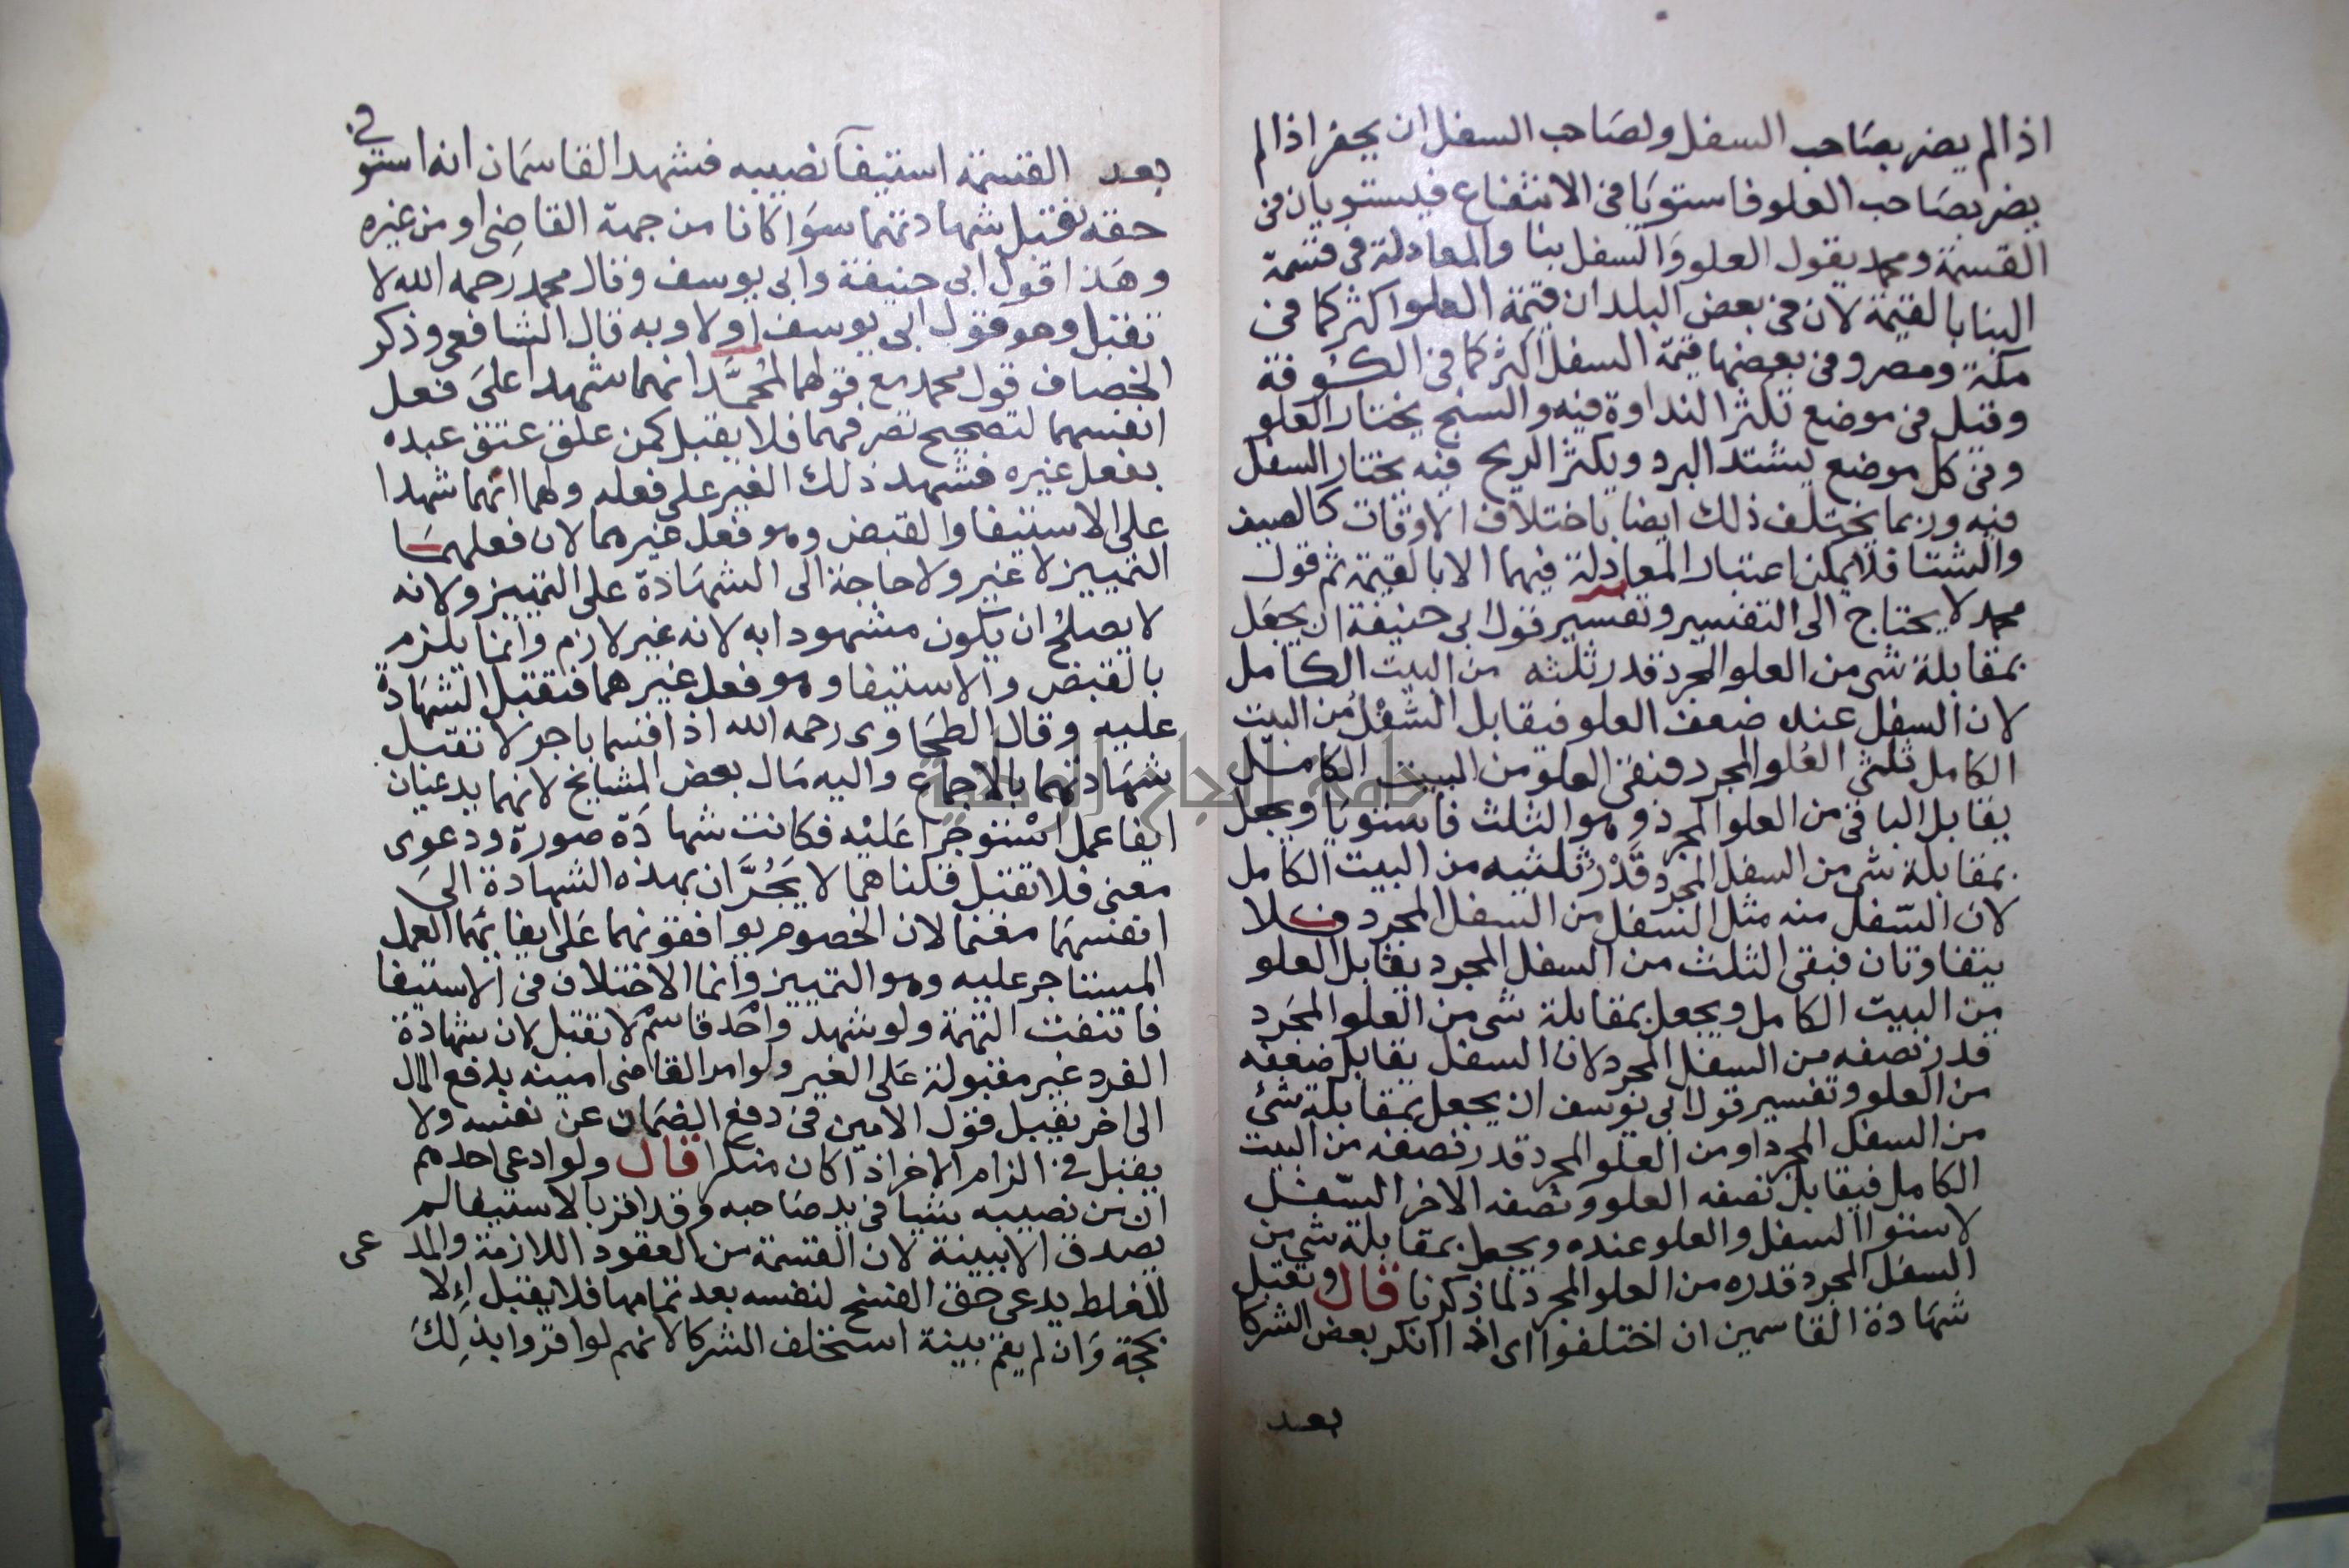 اذا لم يضر بصاحب السفل ولصاحب السفل ان يحفر اذا لم
يضر بصاحب العلو فاستويا في الانتفاع فيستويان في
القسمة ومحمد يقول العلو والسفل بنا والمعادلة في قسمة
البنا بالقيمة لان في بعض البلدان قيمة العلو اكثر كما في
مكة ومصر وفي بعضها قيمة السفل اكثر كما في الكوفة
وقيل في موضع تكثر النداوة فيه والسبخ يختار العلو
وفي كل موضع يشتد البرد ويكثر الريح فيه يختار السفل
فيه وربما يختلف ذلك ايضا باختلاف الاوقات كالصيف
والشتا فلا يمكن اعتبار المعادلة فيهما الا بالقيمة ثم قول
محمد لا يحتاج الى التفسير وتفسير قول ابي حنيفة ان يجعل
بمقابلة شي من العلو المجرد قدر ثلثه من البيت الكامل
لان السفل عنده ضعف العلو فيقابل السفل من البيت
الكامل ثلثي العلو المجرد فبقي العلو من البيت الكامل
يقابل الباقي من العلو المجرد وهو الثلث فاستويا ويجعل
بمقابلة شي من السفل المجرد قدر ثلثيه من البيت الكامل
لان السفل منه مثل السفل من السفل المجرد فلا
يتفاوتان فبقي الثلث من السفل المجرد يقابل العلو
من البيت الكامل ويجعل بمقابلة شي من العلو المجرد
قدر نصفه من السفل المجرد لان السفل يقابل ضعفه
من العلو وتفسير قول ابي يوسف ان يجعل بمقابلة شئ
من السفل المجرد او من العلو المجرد قدر نصفه من البيت
الكامل فيقابل نصفه العلو ونصفه الاخر السفل
لاستوا السفل والعلو عنده ويجعل بمقابلة شي من
السفل المجرد قدره من العلو المجرد لما ذكرنا قال وتقبل
شهادة القاسمين ان اختلفوا اي اذا انكر بعض الشركا
بعد
بعد القسمة استيفآ نصيبه فشهد القاسمان انه استوفي
حقه تقبل شهادتهما سوا كانا من جهة القاضي او من غيره
وهذا قول ابي حنيفة وابي يوسف وقال محمد رحمه الله لا
تقبل وهو قول ابي يوسف اولا وبه قال الشافعي وذكر
الخصاف قول محمد مع قولهما لمحمد انهما شهدا على فعل
انفسهما لتصحيح تصرفهما فلا يقبل كمن علق عتق عبده
بفعل غيره فشهد ذلك الغير على فعله ولهما انهما شهدا
على الاستيفا والقبض وهو فعل غيرهما لان فعلهما
التمييز لا غير ولا حاجة الى الشهادة على التمييز ولانه
لا يصلح ان يكون مشهودا به لانه غير لازم وانما يلزم
بالقبض والاستيفا وهو فعل غيرهما فتقبل الشهادة
عليه وقال الطحاوى رحمه الله اذا قسما باجر لا تقبل
شهادتهما بالاجماع واليه مال بعض المشايخ لانهما يدعيان
ايفا عمل استوجرا عليه فكانت شهادة صورة ودعوى
معنى فلا تقبل قلنا هما لا يجران بهذه الشهادة الى
انفسهما مغنما لان الخصوم يوافقونهما على ايفائهما العمل
المستاجر عليه وهو التمييز وانما الاختلاف في الاستيفا
فانتفت التهمة ولو شهد واحد قاسم لا تقبل لان شهادة
الفرد غير مقبولة على الغير ولو امر القاضى امينه بدفع المال
الى اخر يقبل قول الامين في دفع الضمان عن نفسه ولا
يقبل في الزام الاخر اذا كان منكرا قال ولو ادعى احدهم
ان من نصيبه شيا في يد صاحبه وقد اقر بالاستيفا لم
يصدق الا ببينة لان القسمة من العقود اللازمة والمدعى
للغلط يدعى حق الفسخ لنفسه بعد تمامها فلا يقبل الا
بحجة وان لم يقم بينة استحلف الشركا لانهم لو اقروا بذلك